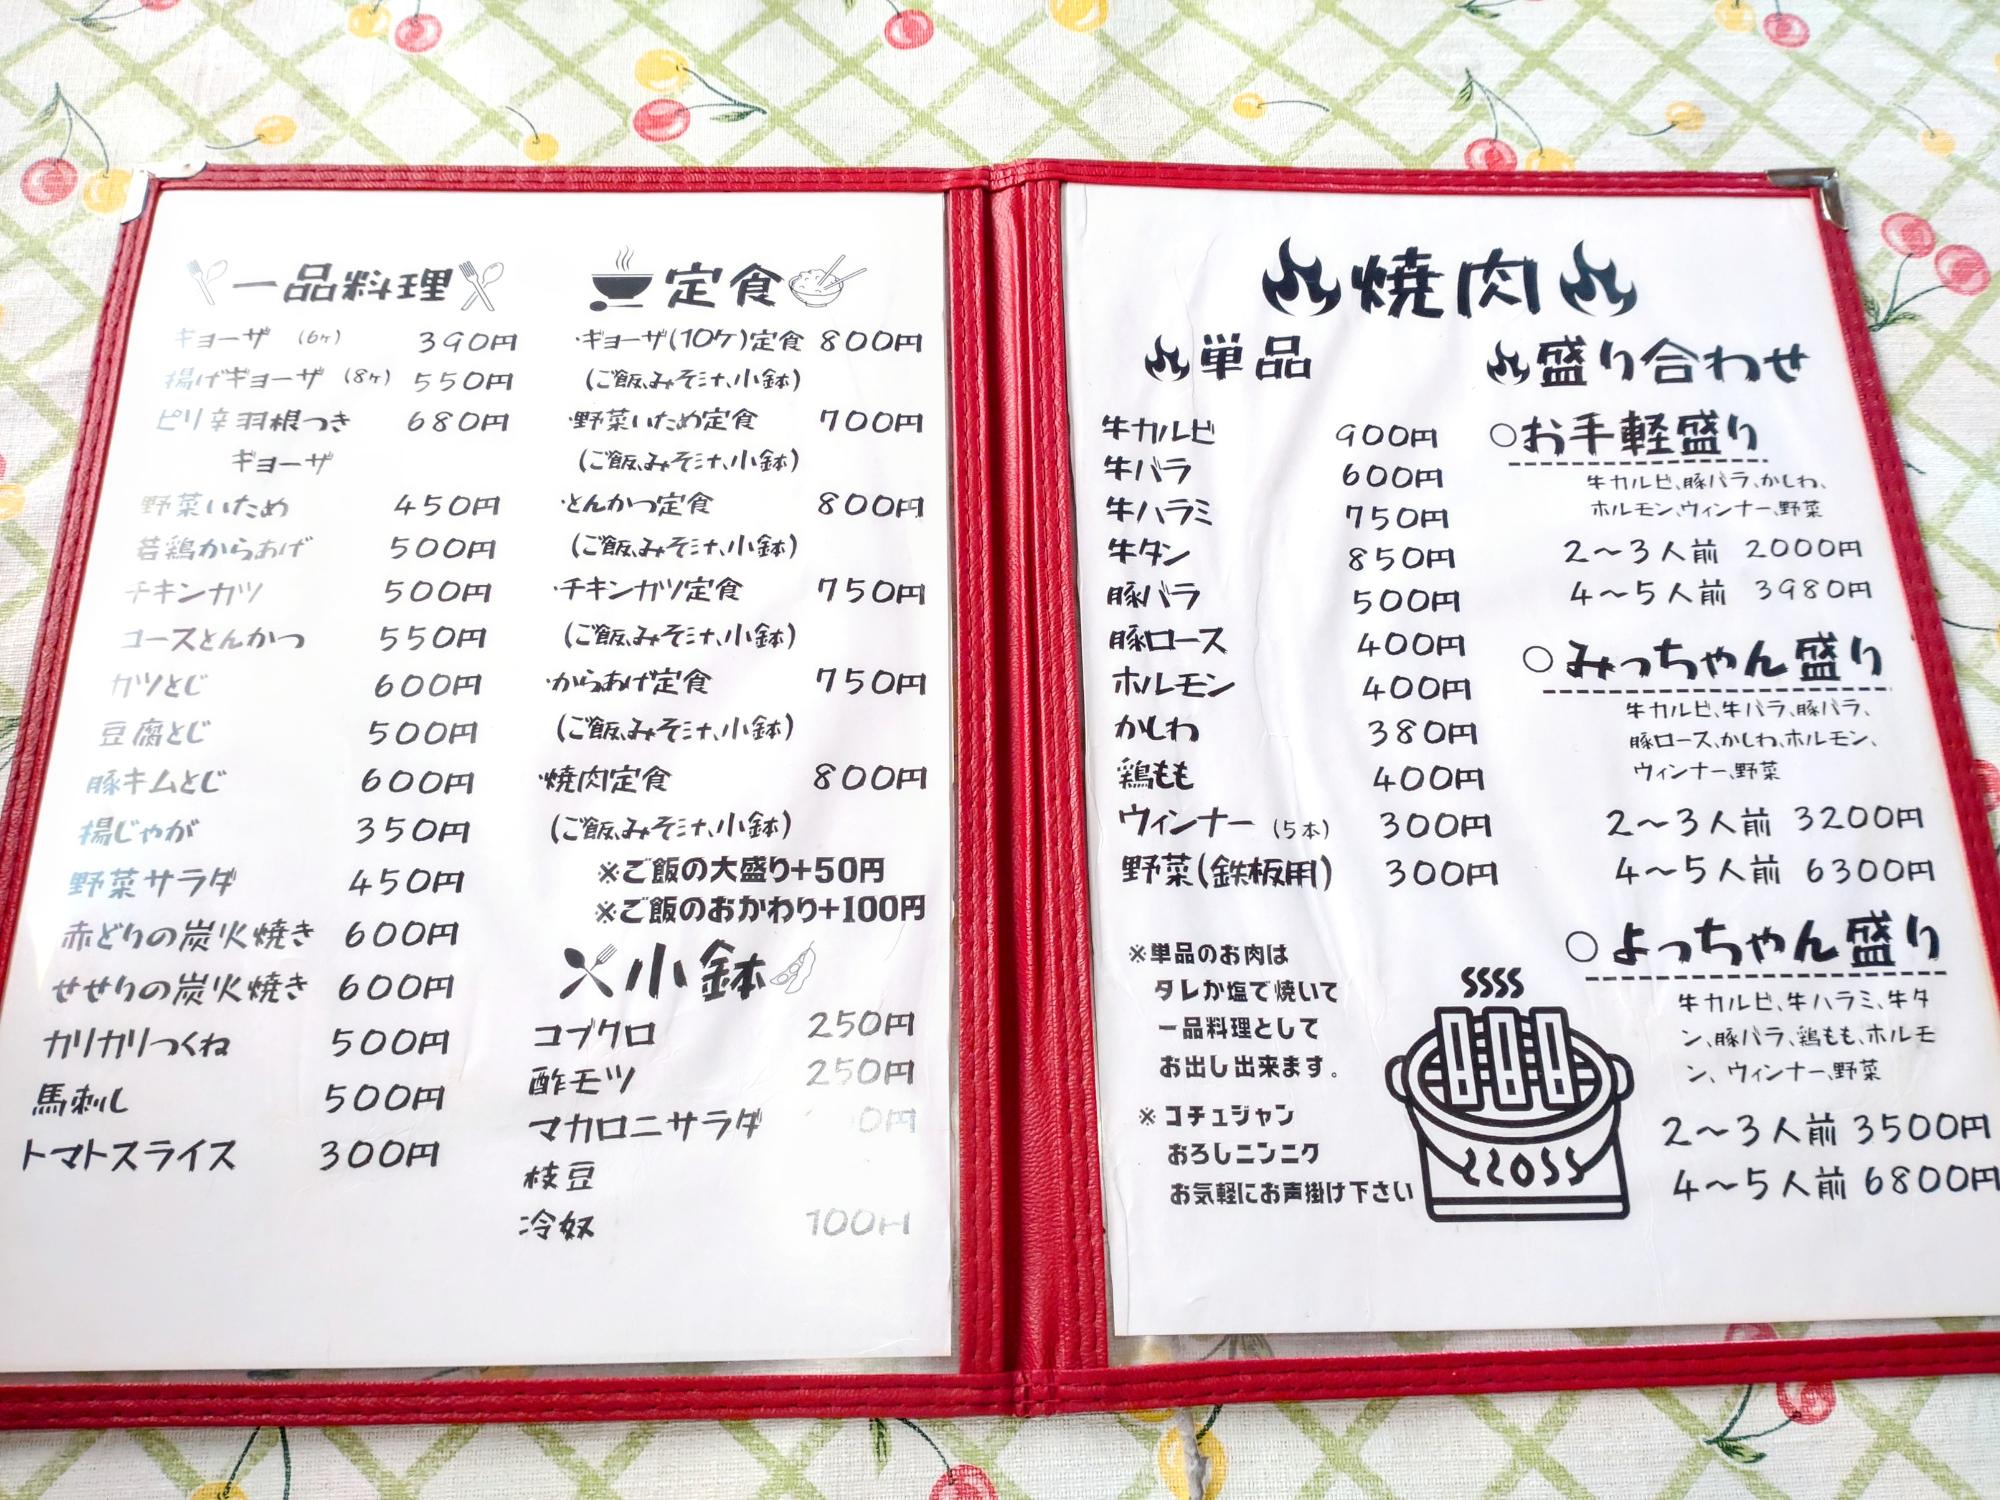 一品料理
ギョーザ (6ヶ) 390円
揚げギョーザ (8ヶ) 550円
ピリ辛羽根つき 680円
ギョーザ
野菜いため 450円
若鶏からあげ 500円
チキンカツ 500円
ロースとんかつ 550円
カツとじ 600円
豆腐とじ 500円
豚キムとじ 600円
揚じゃが 350円
野菜サラダ 450円
赤どりの炭火焼き 600円
せせりの炭火焼き 600円
カリカリつくね 500円
馬刺し 500円
トマトスライス 300円
定食
・ギョーザ(10ケ)定食 800円
(ご飯、みそ汁、小鉢)
・野菜いため定食 700円
(ご飯、みそ汁、小鉢)
・とんかつ定食 800円
(ご飯、みそ汁、小鉢)
・チキンカツ定食 750円
(ご飯、みそ汁、小鉢)
・からあげ定食 750円
(ご飯、みそ汁、小鉢)
・焼肉定食 800円
(ご飯、みそ汁、小鉢)
※ご飯の大盛り+50円
※ご飯のおかわり+100円
小鉢
コブクロ 250円
酢モツ 250円
マカロニサラダ
枝豆
冷奴 100円
焼肉
単品
牛カルビ 900円
牛バラ 600円
牛ハラミ 750円
牛タン 850円
豚バラ 500円
豚ロース 400円
ホルモン 400円
かしわ 380円
鶏もも 400円
ウィンナー (5本) 300円
野菜(鉄板用) 300円
※単品のお肉は
タレか塩で焼いて
一品料理として
お出し出来ます。
※コチュジャン
おろしニンニク
お気軽にお声掛け下さい
盛り合わせ
○お手軽盛り
牛カルビ、豚バラ、かしわ、
ホルモン、ウィンナー、野菜
2〜3人前 2000円
4〜5人前 3980円
○みっちゃん盛り
牛カルビ、牛バラ、豚バラ、
豚ロース、かしわ、ホルモン、
ウィンナー、野菜
2〜3人前 3200円
4〜5人前 6300円
○よっちゃん盛り
牛カルビ、牛ハラミ、牛タ
ン、豚バラ、鶏もも、ホルモ
ン、ウィンナー、野菜
2〜3人前 3500円
4〜5人前 6800円